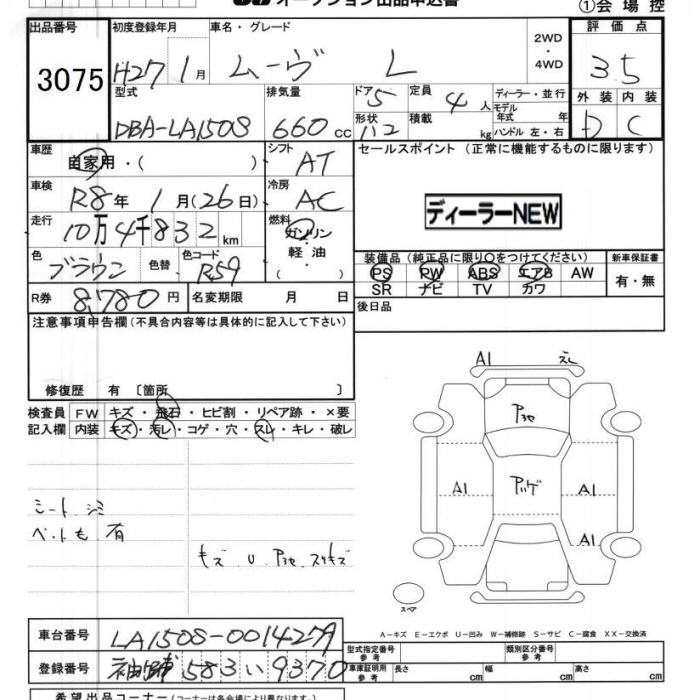 オークション出品申込書
①会場控
出品番号 初度登録年月 車名・グレード 2WD ・ 4WD 評価点
3075 H27 1月 ムーヴ L 3.5
型式 排気量 ドア 5 定員 4人 ディーラー・並行 外装 内装
DBA-LA150S 660cc 形状 積載 kg モデル年式 年 ハンドル 左・右 D C
車歴 自家用・( ) シフト AT セールスポイント (正常に機能するものに限ります)
車検 R8年 1月(26日) 冷房 AC
ディーラーNEW
走行 10万4千832km 燃料 ガソリン・軽油・
色 ブラウン 色替 色コード R59
装備品 (純正品に限り○をつけてください) 新車保証書
PS PW ABS エアB AW 有・無
SR ナビ TV カワ
R券 8,780円 名変期限 月 日 後日品
注意事項申告欄(不具合内容等は具体的に記入して下さい)
修復歴 有 〔箇所 〕
検査員 FW キズ・飛石・ヒビ割・リペア跡・×要
記入欄 内装 キズ・汚レ・コゲ・穴・スレ・キレ・破レ
シート シミ
ペット毛 有
A1
A1
A1
A1
スペア
A-キズ E-エクボ U-凹み W-補修跡 S-サビ C-腐食 XX-交換済
車台番号 LA150S-0014279
型式指定番号 参考 類別区分番号 参考
登録番号 583 い 9370
車庫証明用 参考 長さ cm 幅 cm 高さ cm
希望出品コーナー(コーナーは各会場により異なります。)